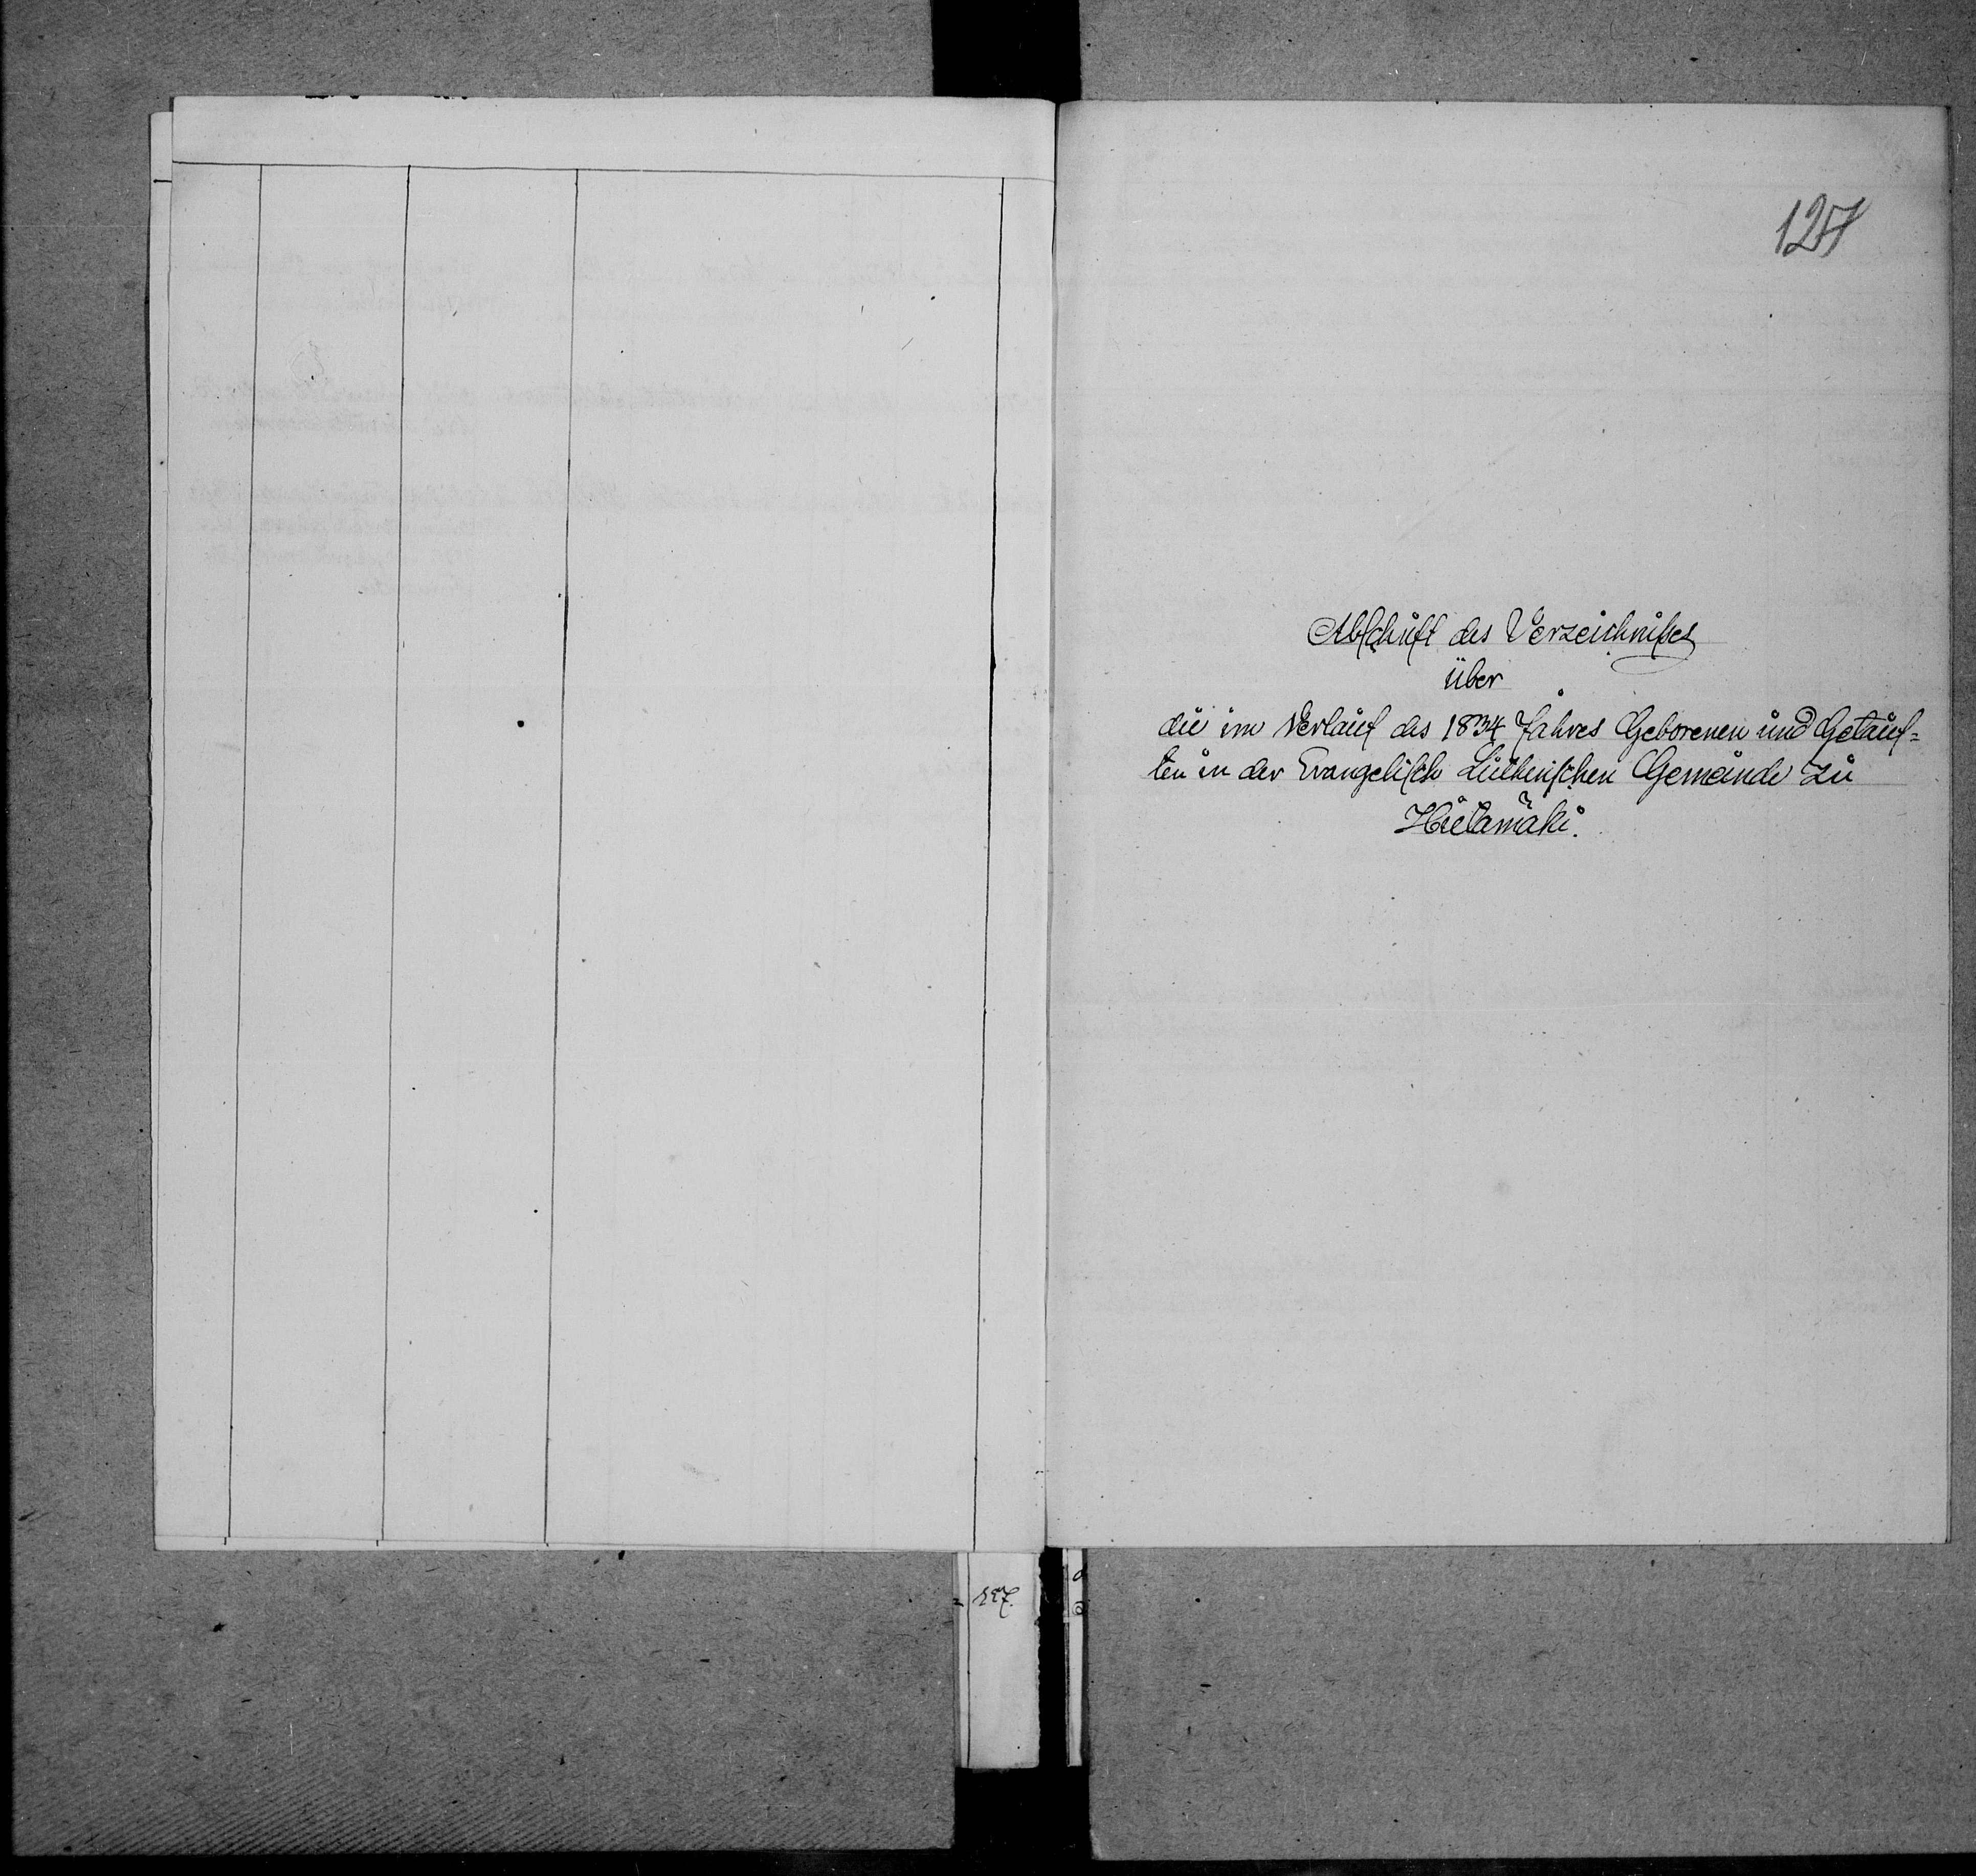 127
Abschrift des Verzeichnißes
über
die im Verlauf des 1834 Jahres Geborenen und Getauf=
ten in der Evangelisch Lutherischen Gemeinde zu
Hietamäki.